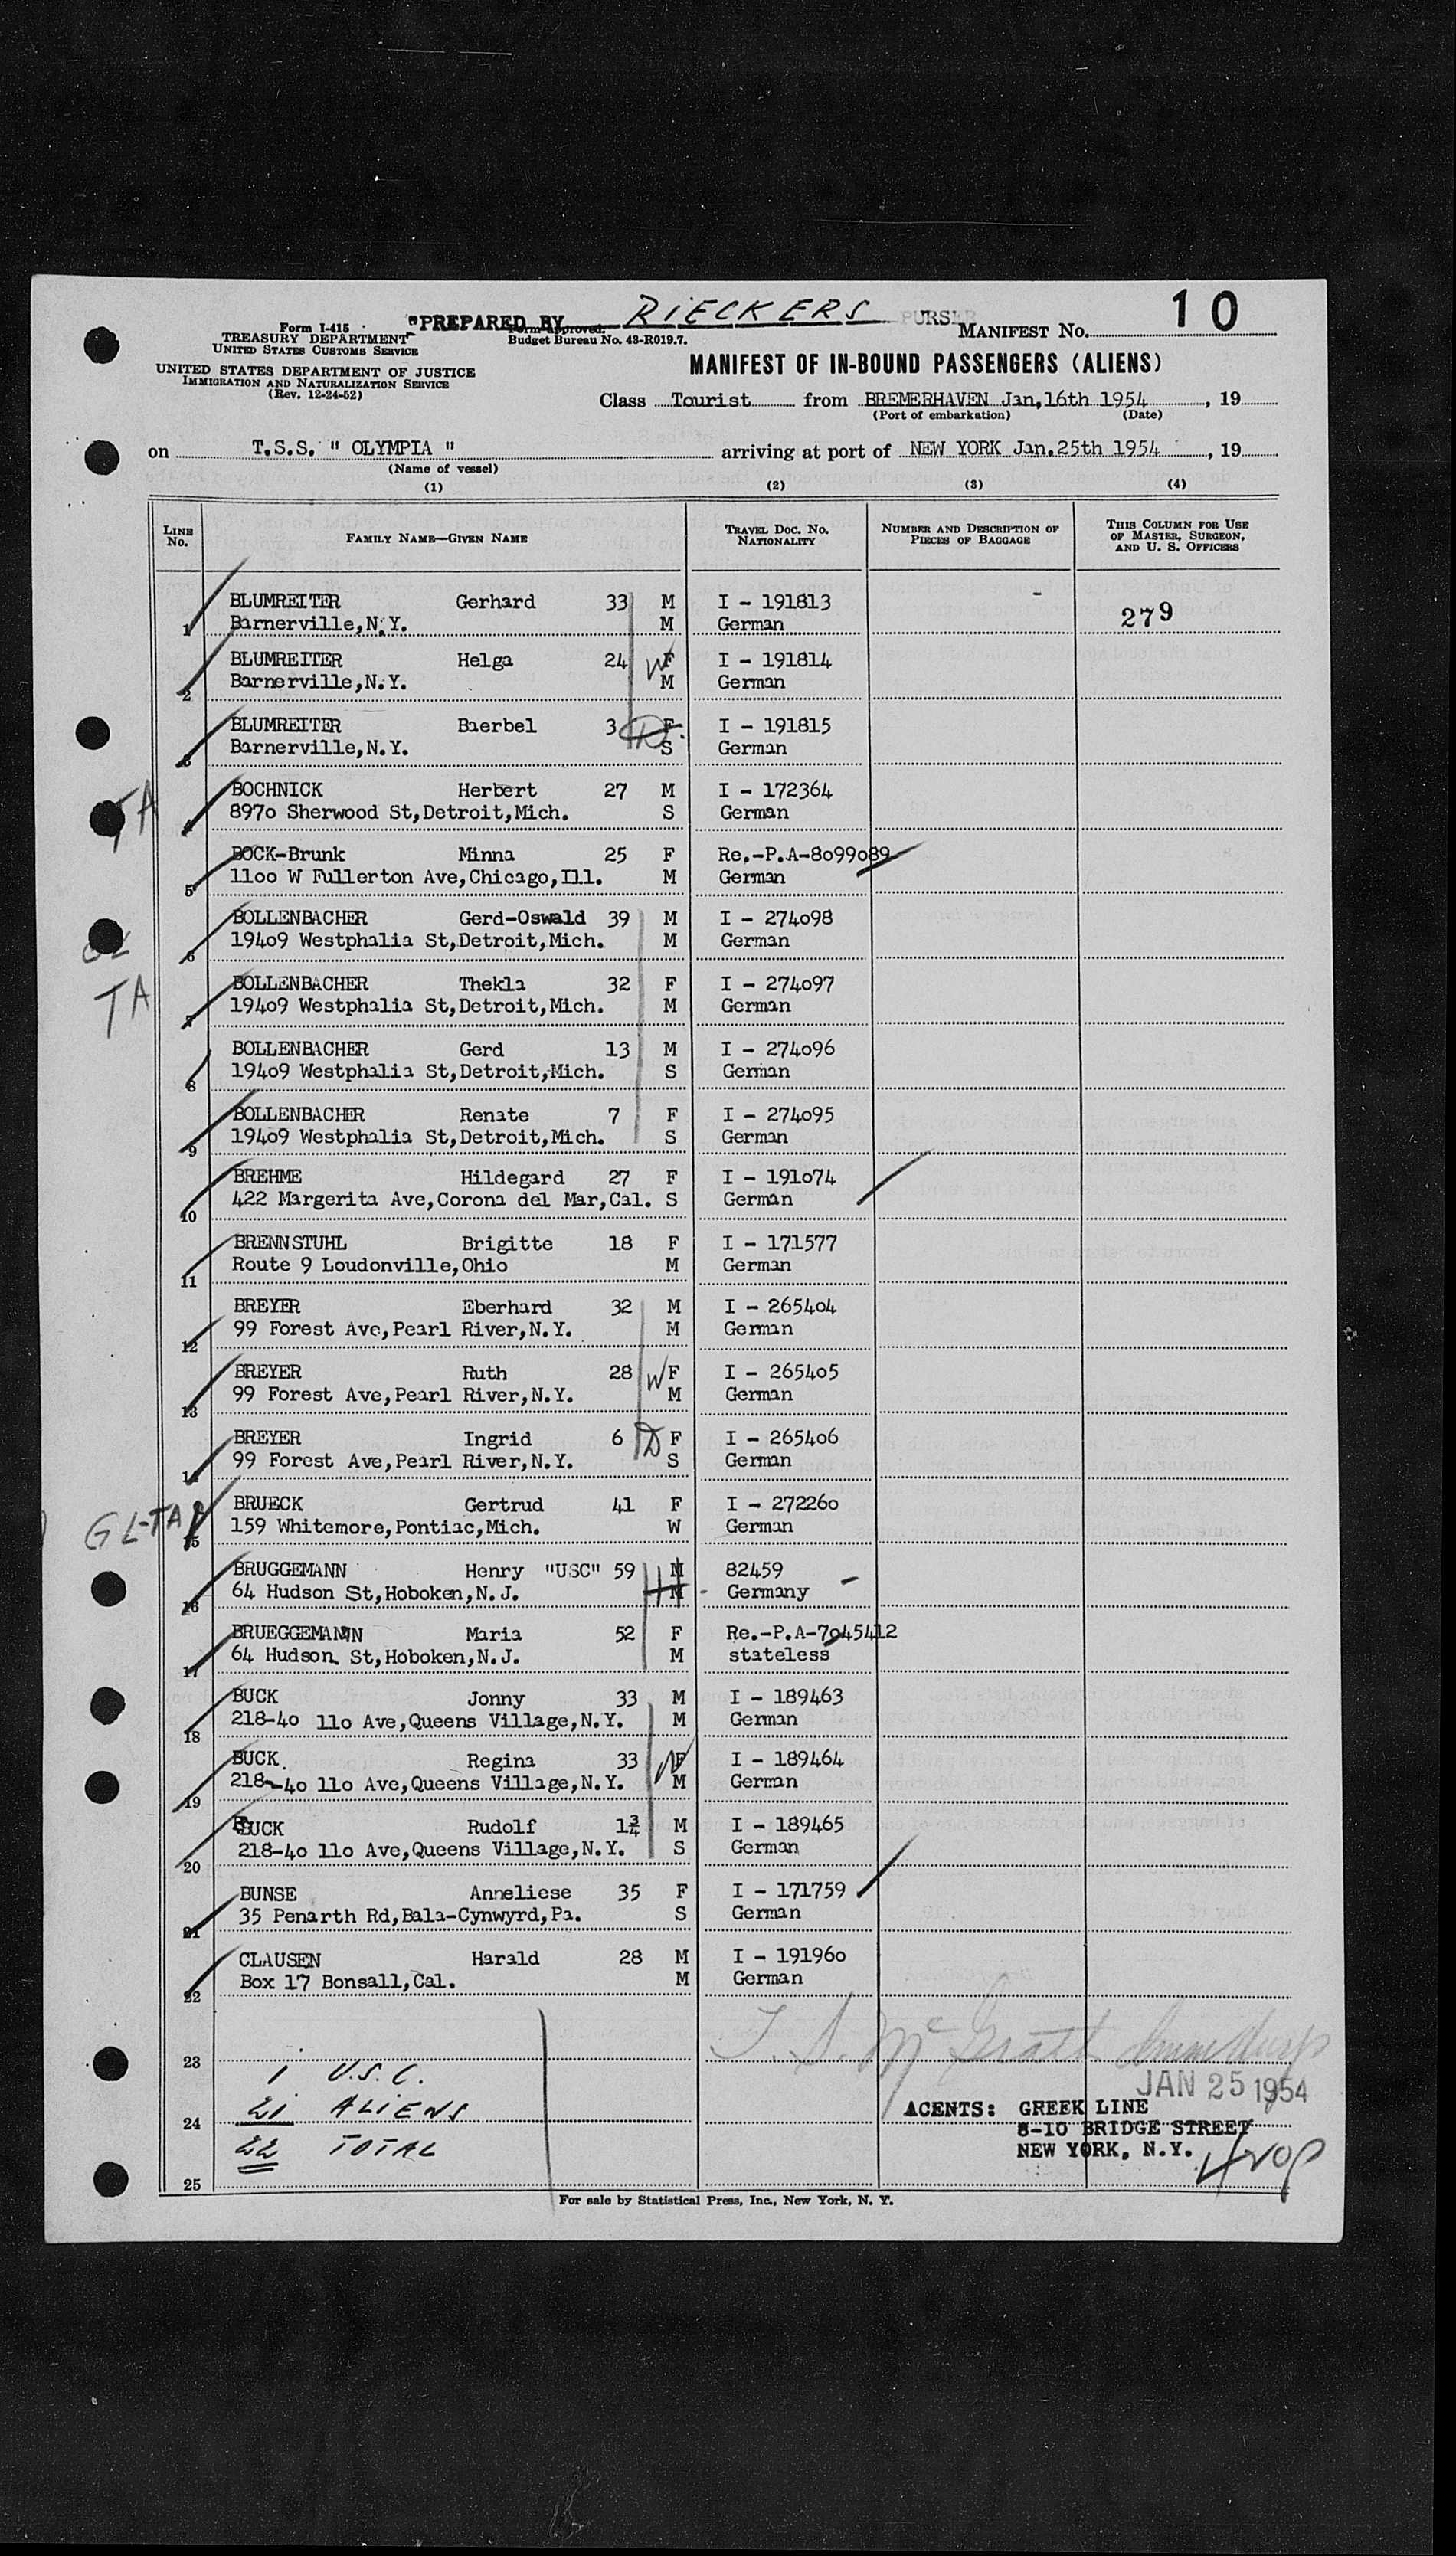 "PREPARED BY RIECKERS PURSER
Form I-415
TREASURY DEPARTMENT
UNITED STATES CUSTOMS SERVICE
Form approved.
Budget Bureau No. 43-R019.7.
MANIFEST No. 10
UNITED STATES DEPARTMENT OF JUSTICE
IMMIGRATION AND NATURALIZATION SERVICE
(Rev. 12-24-52)
MANIFEST OF IN-BOUND PASSENGERS (ALIENS)
Class Tourist from BREMERHAVEN Jan,16th 1954, 19
(Port of embarkation) (Date)
on T.S.S. " OLYMPIA " arriving at port of NEW YORK Jan.25th 1954, 19
(Name of vessel)
(1) (2) (3) (4)
LINE No. FAMILY NAME—GIVEN NAME TRAVEL DOC. NO. NATIONALITY NUMBER AND DESCRIPTION OF PIECES OF BAGGAGE THIS COLUMN FOR USE OF MASTER, SURGEON, AND U. S. OFFICERS
BLUMREITER Gerhard 33 M I - 191813
1 Barnerville,N.Y. M German 279
BLUMREITER Helga 24 W F I - 191814
2 Barnerville,N.Y. M German
BLUMREITER Baerbel 3 D F I - 191815
3 Barnerville,N.Y. S German
TA BOCHNICK Herbert 27 M I - 172364
4 897o Sherwood St,Detroit,Mich. S German
BOCK-Brunk Minna 25 F Re.-P.A-8o99o89
5 11oo W Fullerton Ave,Chicago,Ill. M German
BOLLENBACHER Gerd-Oswald 39 M I - 274o98
6 194o9 Westphalia St,Detroit,Mich. M German
TA BOLLENBACHER Thekla 32 F I - 274o97
7 194o9 Westphalia St,Detroit,Mich. M German
BOLLENBACHER Gerd 13 M I - 274o96
8 194o9 Westphalia St,Detroit,Mich. S German
BOLLENBACHER Renate 7 F I - 274o95
9 194o9 Westphalia St,Detroit,Mich. S German
BREHME Hildegard 27 F I - 191o74
10 422 Margerita Ave,Corona del Mar,Cal. S German
BRENNSTUHL Brigitte 18 F I - 171577
11 Route 9 Loudonville,Ohio M German
BREYER Eberhard 32 M I - 2654o4
12 99 Forest Ave,Pearl River,N.Y. M German
BREYER Ruth 28 W F I - 2654o5
13 99 Forest Ave,Pearl River,N.Y. M German
BREYER Ingrid 6 D F I - 2654o6
14 99 Forest Ave,Pearl River,N.Y. S German
GL-TA BRUECK Gertrud 41 F I - 27226o
15 159 Whitemore,Pontiac,Mich. W German
BRUGGEMANN Henry "USC" 59 H M 82459
16 64 Hudson St,Hoboken,N.J. M Germany
BRUEGGEMANN Maria 52 F Re.-P.A-7o45412
17 64 Hudson St,Hoboken,N.J. M stateless
BUCK Jonny 33 M I - 189463
18 218-4o 11o Ave,Queens Village,N.Y. M German
BUCK. Regina 33 W F I - 189464
19 218-4o 11o Ave,Queens Village,N.Y. M German
BUCK Rudolf 1¾ M I - 189465
20 218-4o 11o Ave,Queens Village,N.Y. S German
BUNSE Anneliese 35 F I - 171759
21 35 Penarth Rd,Bala-Cynwyrd,Pa. S German
CLAUSEN Harald 28 M I - 19196o
22 Box 17 Bonsall,Cal. M German
T. S. McGrath
23 1 U.S.C.
JAN 25 1954
24 21 ALIENS
AGENTS: GREEK LINE
8-10 BRIDGE STREET
22 TOTAL
NEW YORK, N.Y.
25
For sale by Statistical Press, Inc., New York, N. Y.